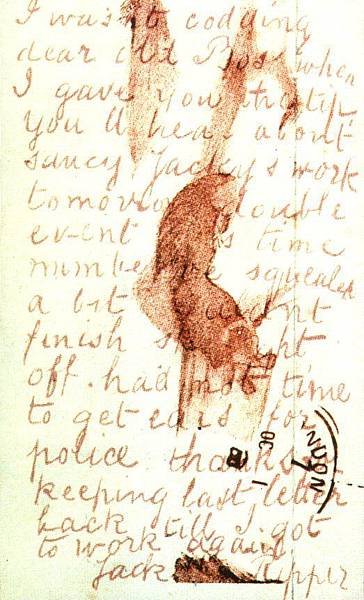 I was not codding
dear old Boss when
I gave you the tip,
you'll hear about
saucy Jacky's work
tomorrow double
event time
number squealed
a bit
finish
off. had not time
to get ears for
police thanks for
keeping last letter
back till I got
to work again
Jack Ripper
LONDON
OC